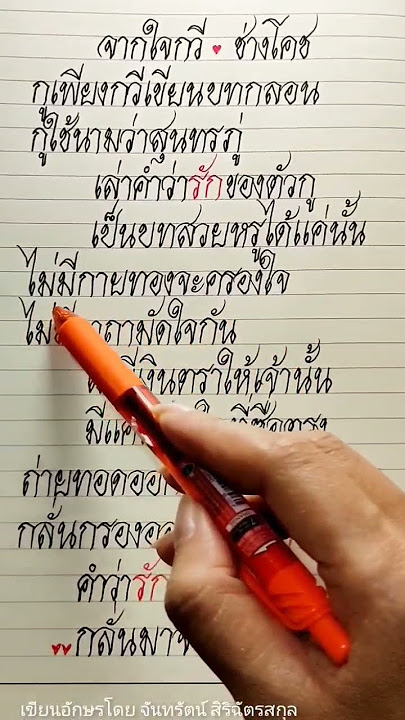 จากใจกวี ♥ ช่างโคช
กูเพียงกวีเขียนบทกลอน
กูใช้นามว่าสุนทรภู่
เล่าคำว่ารักของตัวกู
เป็นบทสวยหรูได้แค่นั้น
ไม่มีกายทองจะครองใจ
ไม่มีคาถามัดใจกัน
เงินตราให้เจ้านั้น
มีแค่
ถ่ายทอดออก
กลั่นกรองออก
คำว่ารัก
♥♥กลั่นมาจ
เขียนอักษรโดย จันทรัตน์ สิริฉัตรสกุล